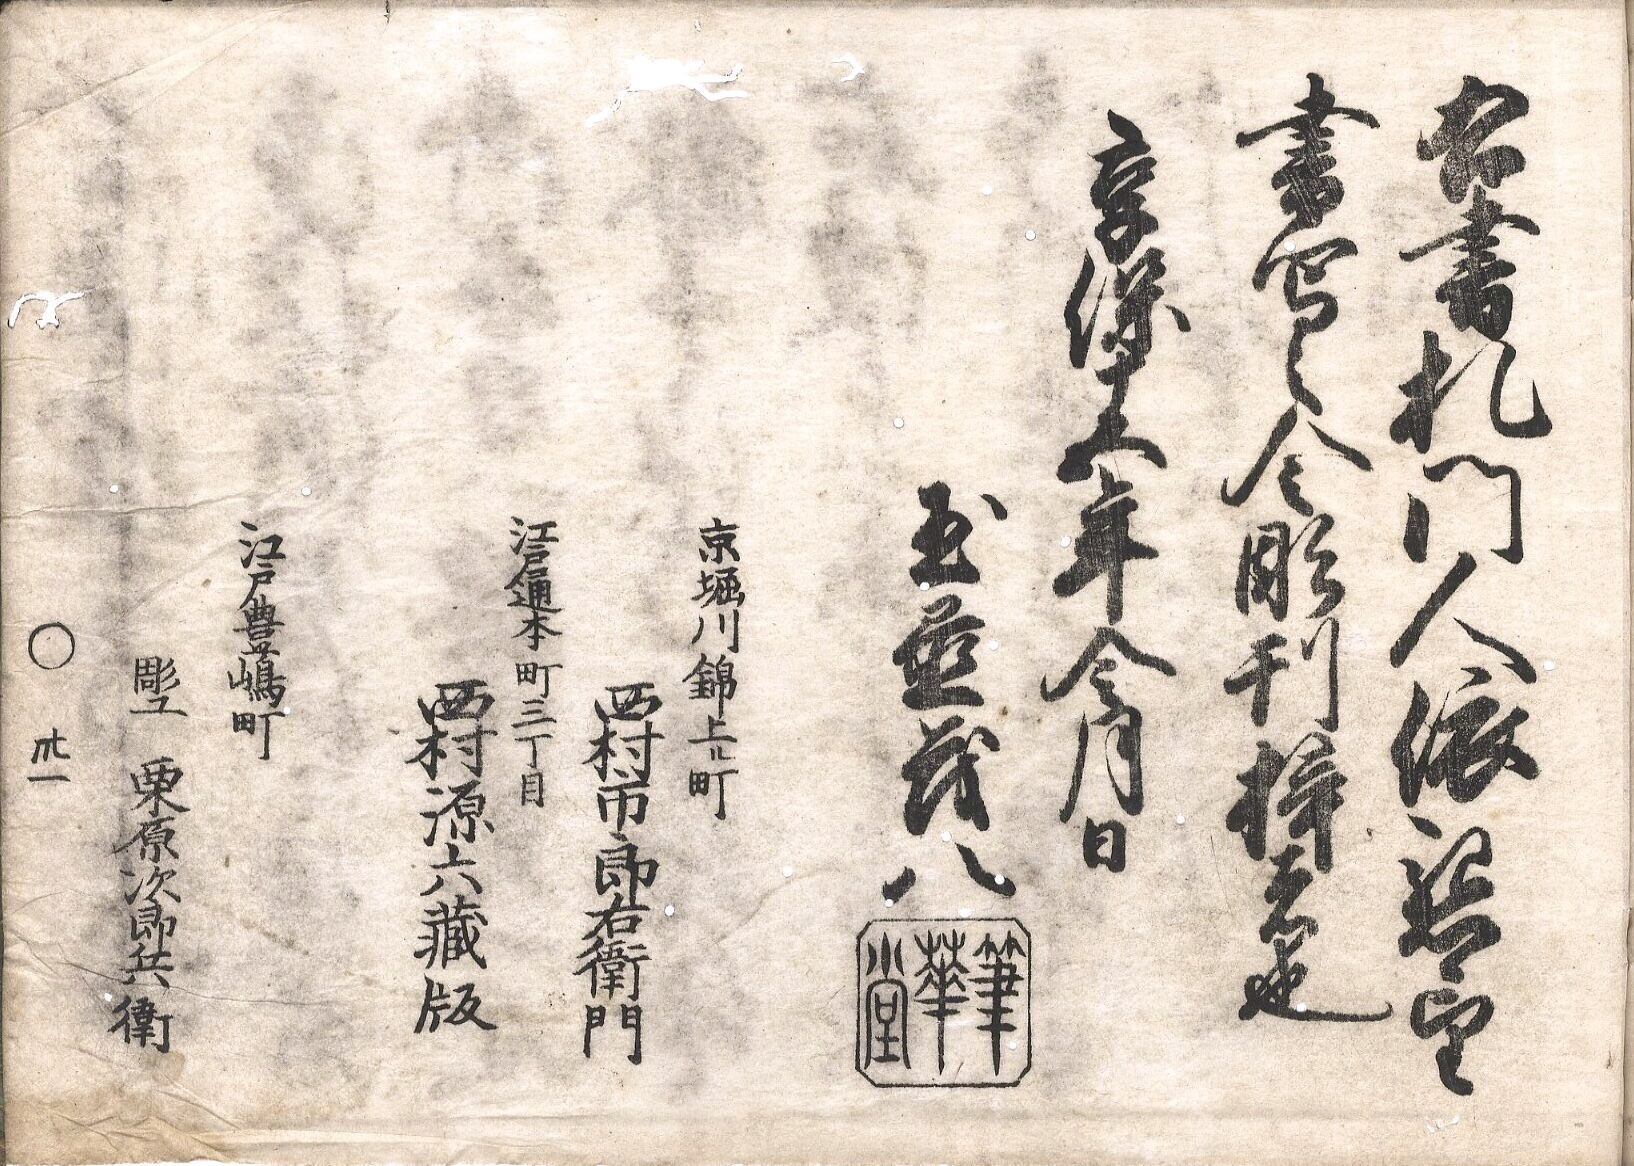 右書札門人依懇望
書写之令彫刊梓者也
享保十五年今月日
玉置茂八
筆華堂
京堀川錦上ル町
西村市郎右衛門
江戸通本町三丁目
西村源六藏版
江戸豊嶋町
彫工 栗原次郎兵衛
〇 卅一